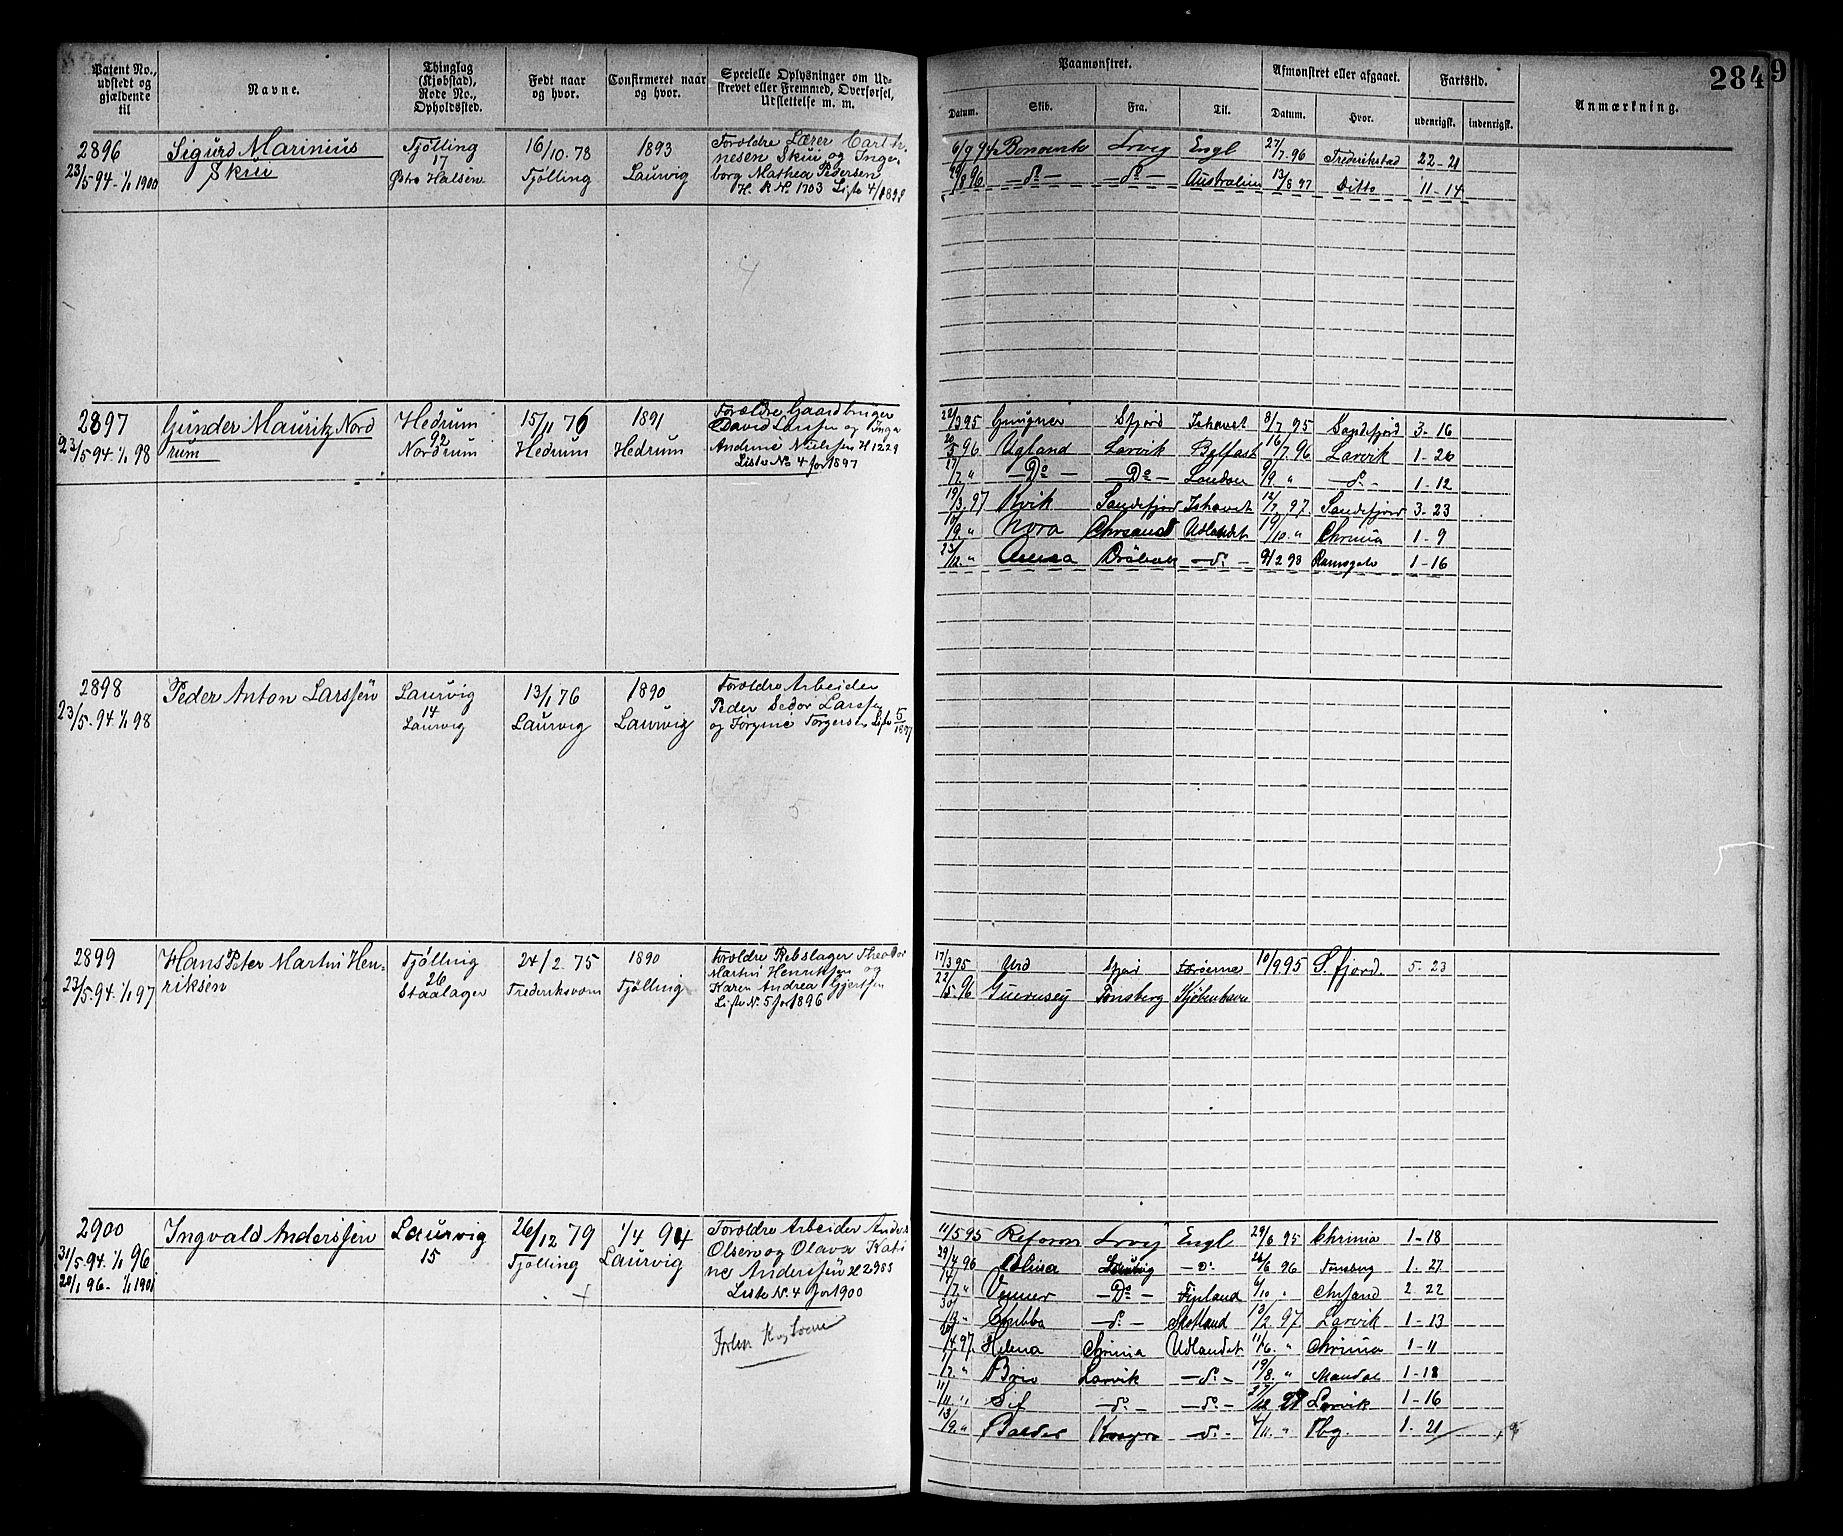 2849
Patent No., udstedt og gjældende til
Navne.
Thinglag (Kjøbstad), Rode No., Opholdssted.
Født naar og hvor.
Confirmeret naar og hvor.
Specielle Oplysninger om Udskrevet eller Fremmed, Overførsel, Udslettelse m. m.
Paamønstret.
Afmønstret eller afgaaet.
Fartstid.
Anmærkning.
Datum. Skib. Fra. Til. Datum. Hvor. udenrigsk. indenrigsk.
2896
23/5 94 - 1/1 1900
Sigurd Marinius
Skiu
Tjølling
17
Østre Halsen
16/10 78
Tjølling
1893
Laurvig
Forældre Lærer Carl
nesen Skiu og Inge
borg Mathea Pedersen
H. R. No. 1703 Liste 4/1899
6/9 94 Lrvg Engl 27/7 96 Frederikstad 22 - 21
29/8 96 - do - - do - Australien 13/8 97 Ditto 11 - 14
4
2897
23/5 94 1/1 98
Gunder Mauritz Nord
rum
Hedrum
92
Nordrum
15/11 76
Hedrum
1891
Hedrum
Forældre Gaardbruger
David Larssen og Inga
Andrine Nielssen H 1229
Liste No 4 for 1897
22/3 95 Gungner Sfjord Ishavet 8/7 95 Sandefjord 3 - 16
20/5 96 Ugland Larvik Belfast 16/7 96 Larvik 1 - 26
27/7 " - Do - - Do - London 9/9 " - do - 1 - 12
19/3 97 Kvik Sandefjord Ishavet 12/7 97 Sandefjord 3 - 23
10/9 " Nora Chrsand Udlandet 19/10 " Chrinia 1 - 9
23/12 " Anna Drøbak - do - 9/2 98 Ramsgate 1 - 16
2898
23/5 - 94 1/1 98
Peder Anton Larssen
Laurvig
14
Laurvig
13/1 76
Laurvig
1890
Laurvig
Forældre Arbeider
Peder Larssen
og Torgersen Liste 5/1897
5
2899
23/5 - 94 1/1 97
Hans Peter Martin Hen-
riksen
Tjølling
26
Staalager
24/2 75
Frederiksværn
1890
Tjølling
Forældre Rebslager Theodor
Martin Henriksen og
Karen Andrea Gjertsen
Liste N. 5 for 1896
17/3 95 Urd Sfjord Færøerne 10/9 95 S.fjord 5 - 23
22/5 96 Guernsey Tønsberg Kjøbenhavn
2900
31/5 - 94 1/1 96
20/1 96 - 1/1 1901
Ingvald Anderssen
Laurvig
15
26/12 79
Tjølling
1/4 94
Laurvig
Forældre Arbeider Anders
Olsen og Olava Kati
ne Anderssen H 2983
Liste N. 4 for 1900
11/5 95 Reform Lrvg Engl 29/6 95 Chrinia 1 - 18
29/4 96 Alina Laurvig - do - 26/6 96 Tønsberg 1 - 27
14/7 " Venner - Do - Finland 6/10 " Chrsand 2 - 22
30/12 " Ebba - do - Skotland 13/2 97 Larvik 1 - 13
20/4 97 Helena Chrinia Udlandet 11/6 " Chrinia 1 - 11
1/7 " Brio Larvik - do - 19/8 " Mandal 1 - 18
11/11 " Sif - do - - do - 27/12 97 Larvik 1 - 16
13/9 " Balder Kragerø - do - 4/11 " Tbg. 1 - 21